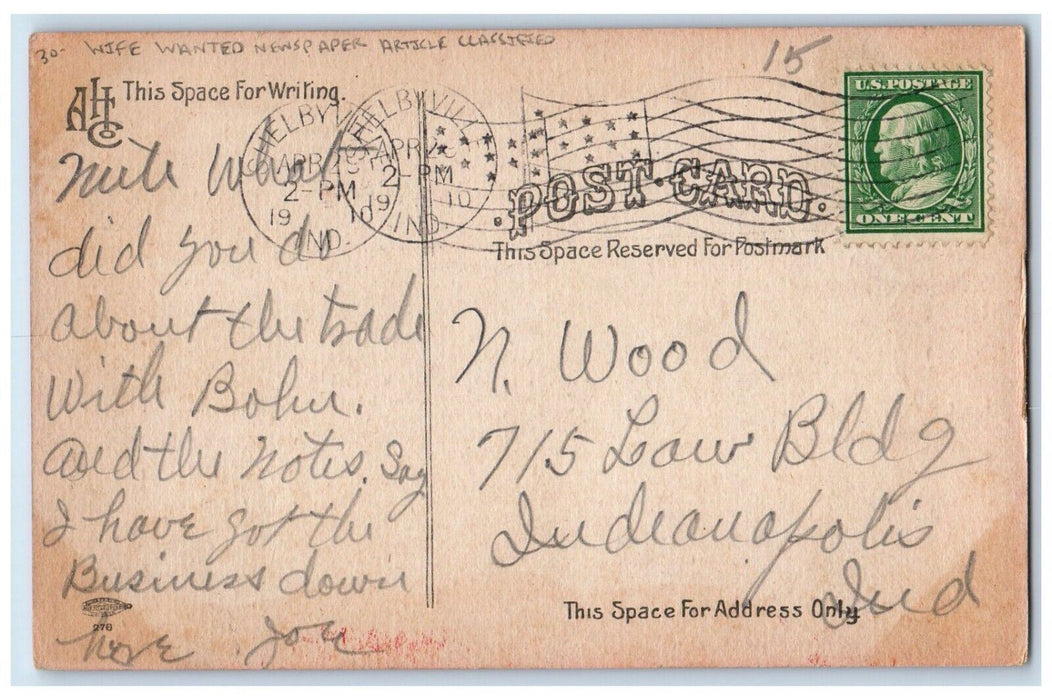 30- WIFE WANTED NEWSPAPER ARTICLE CLASSIFIED
15
AHC Co
This Space For Writing.
U.S. POSTAGE
ONE CENT
SHELBYVILLE
APR 23
2-PM
1910
IND.
SHELBYVILLE
APR 23
2-PM
1910
IND.
POST CARD.
This Space Reserved For Postmark
did you do
about the trade
With Bohn.
and the Notes. Say
I have got the
Business down
here Joe
278
N. Wood
715 Law Bldg
Indeanapolis
Ind
This Space For Address Only